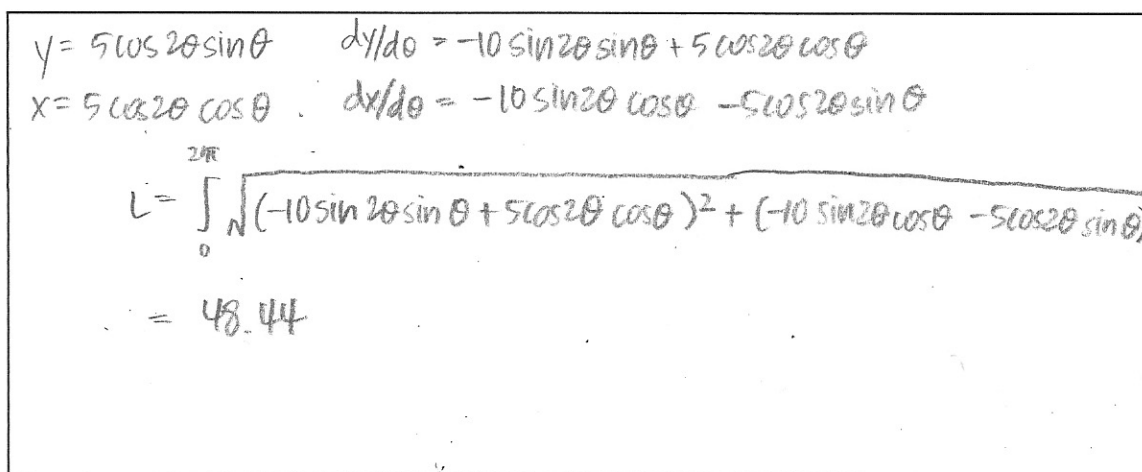 y = 5cos2θsinθ dy/dθ = -10sin2θsinθ + 5cos2θcosθ
x = 5cos2θcosθ . dx/dθ = -10sin2θcosθ - 5cos2θsinθ
L = ∫₀^2π √(-10sin2θsinθ + 5cos2θcosθ)² + (-10sin2θcosθ - 5cos2θsinθ)
= 48.44